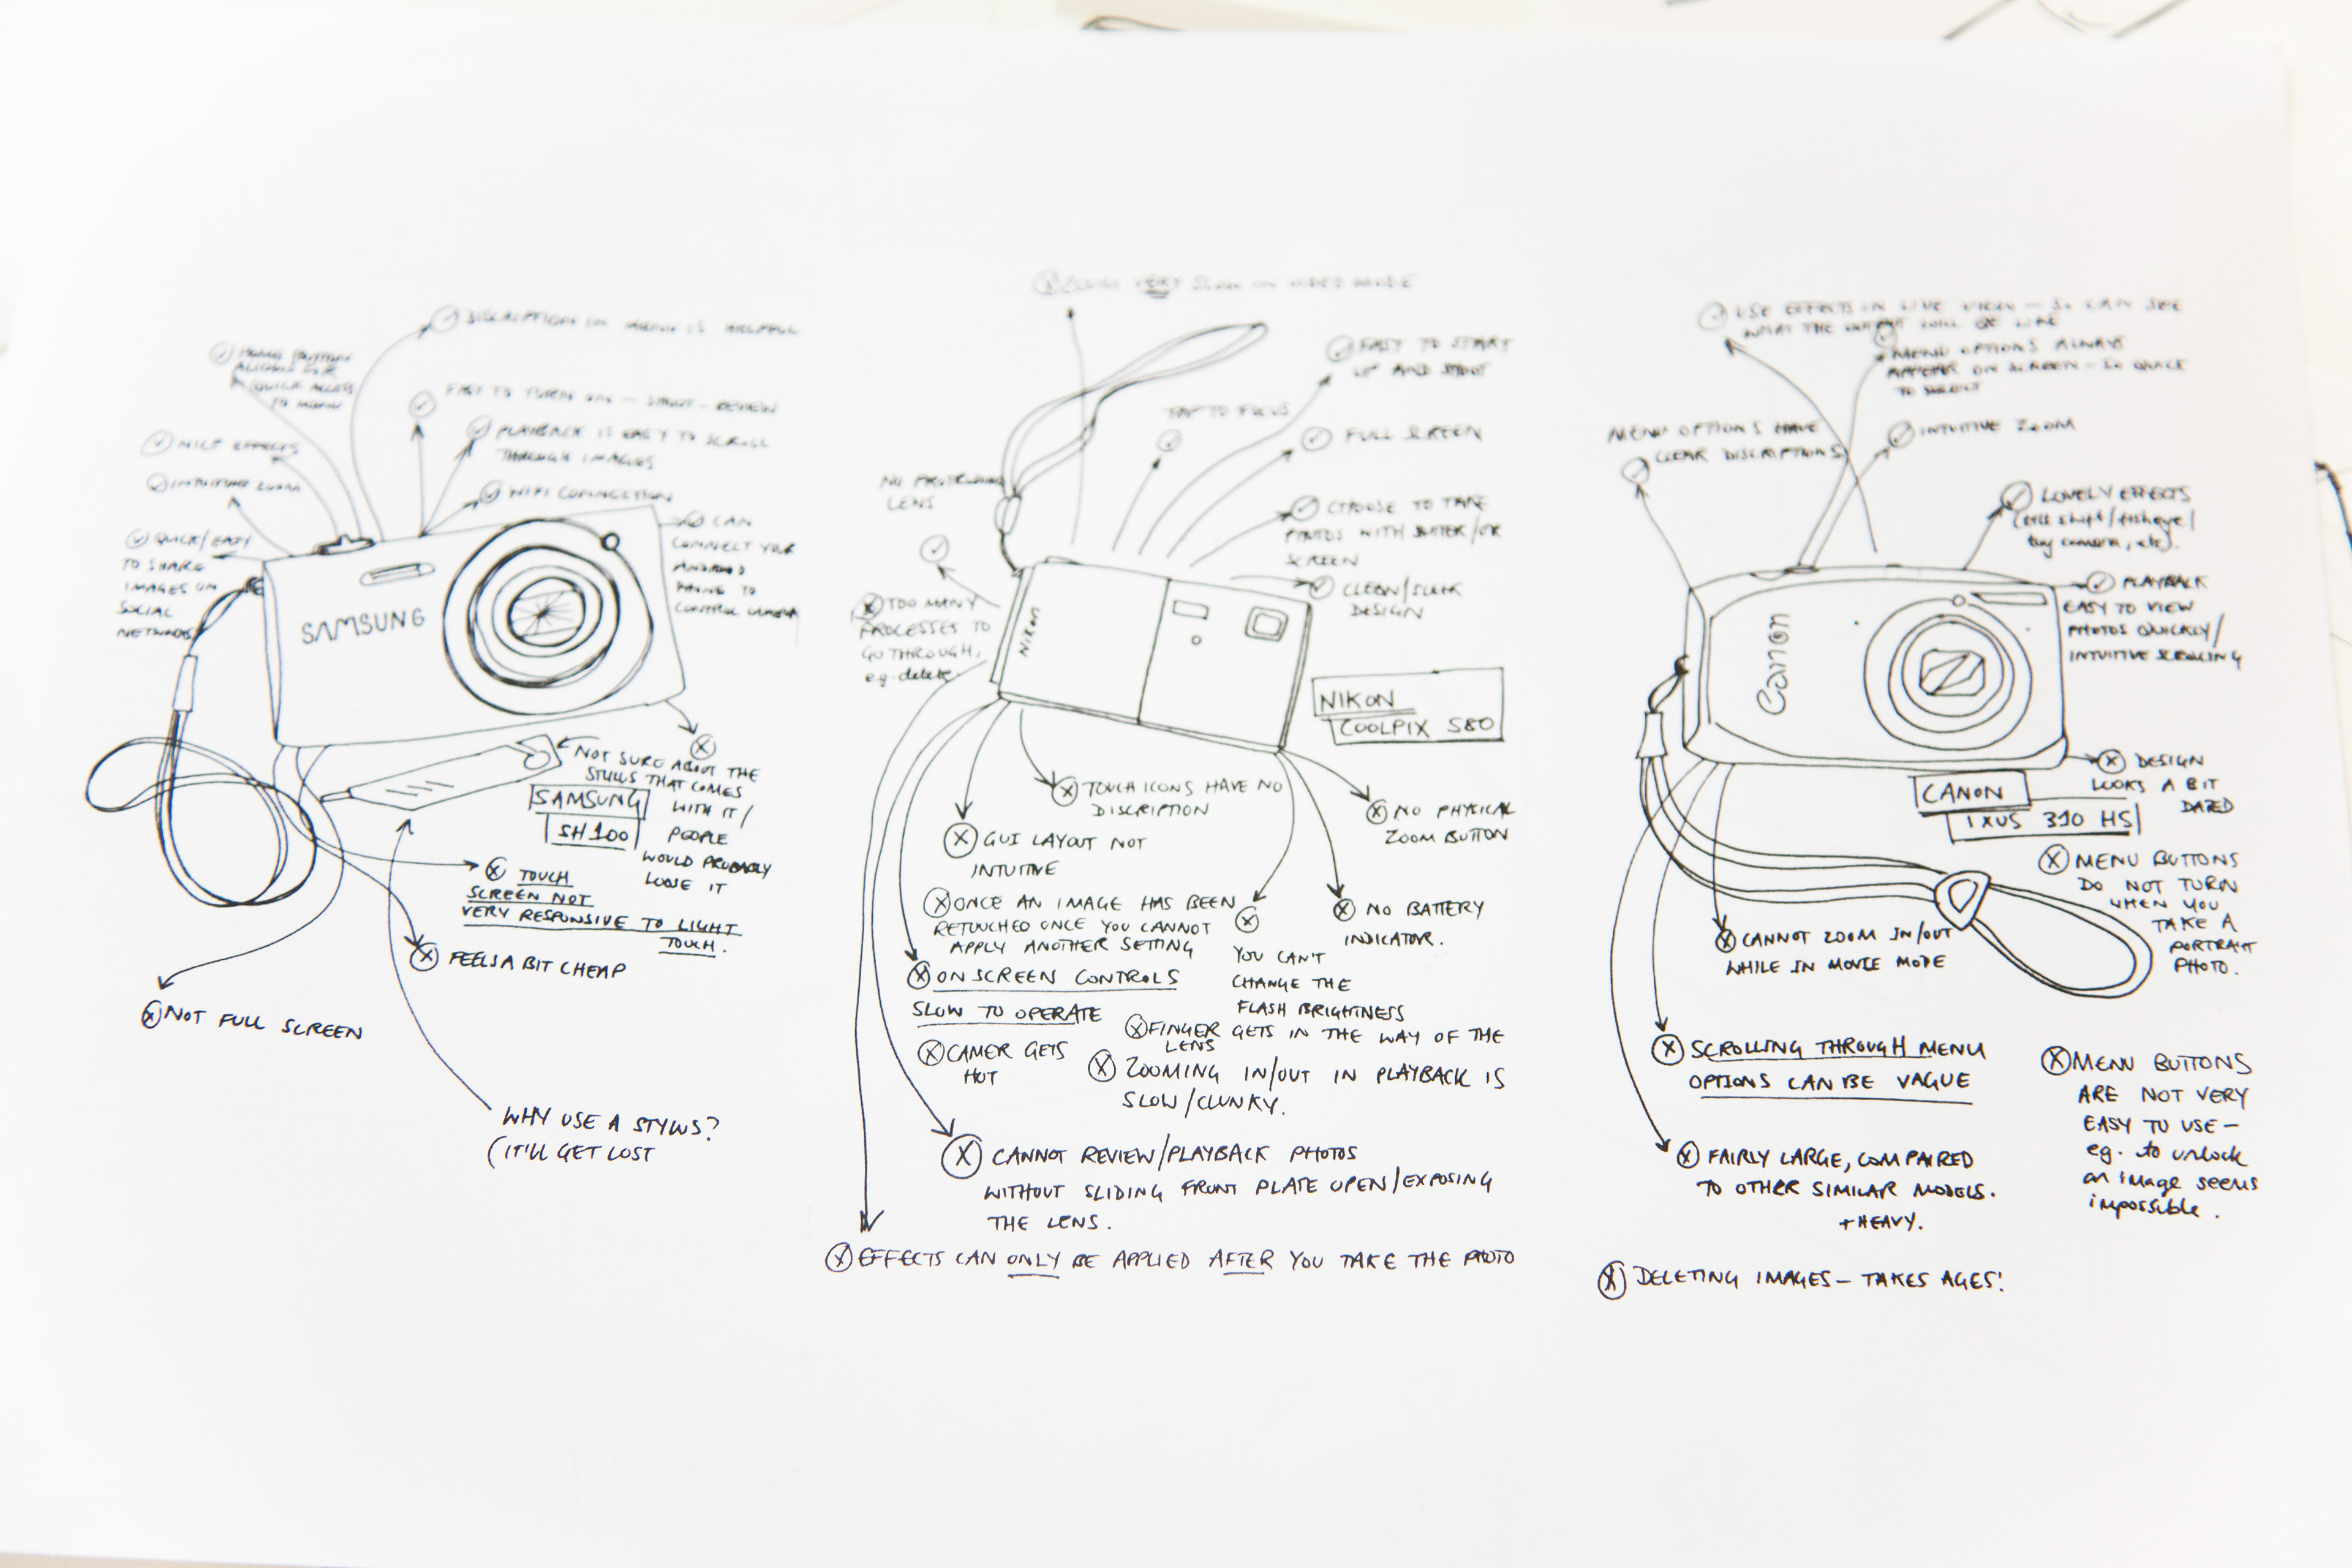 DISCRIPTION IN MENU IS HELPFUL
HOME BUTTON
ALLOWS FOR
QUICK ACCESS
TO MENU
FAST TO TURN ON - SHOOT - REVIEW
PLAYBACK IS EASY TO SCROLL
THROUGH IMAGES
NICE EFFECTS
INTUITIVE ZOOM
WIFI CONNECTION
QUICK/EASY
TO SHARE
IMAGES ON
SOCIAL
NETWORKS
CAN
CONNECT YOUR
ANDROID
PHONE TO
CONTROL CAMERA
SAMSUNG
NOT SURE ABOUT THE
STYLUS THAT COMES
WITH IT/
PEOPLE
WOULD PROBABLY
LOOSE IT
SAMSUNG
SH100
TOUCH
SCREEN NOT
VERY RESPONSIVE TO LIGHT
TOUCH.
FEELS A BIT CHEAP
NOT FULL SCREEN
WHY USE A STYLUS?
(IT'LL GET LOST
ZOOM VERY SLOW IN VIDEO MODE
EASY TO START
UP AND SHOOT
TAP TO FOCUS
FULL SCREEN
NO PROTRUDING
LENS
CHOOSE TO TAKE
PHOTOS WITH SHUTTER/OR
SCREEN
CLEAN/SLEEK
DESIGN
TOO MANY
PROCESSES TO
GO THROUGH,
e.g. delete
Nikon
NIKON
COOLPIX S80
TOUCH ICONS HAVE NO
DISCRIPTION
NO PHYSICAL
ZOOM BUTTON
GUI LAYOUT NOT
INTUITIVE
ONCE AN IMAGE HAS BEEN
RETOUCHED ONCE YOU CANNOT
APPLY ANOTHER SETTING
NO BATTERY
INDICATOR.
YOU CAN'T
CHANGE THE
FLASH BRIGHTNESS
ON SCREEN CONTROLS
SLOW TO OPERATE
FINGER GETS IN THE WAY OF THE
LENS
CAMER GETS
HOT
ZOOMING IN/OUT IN PLAYBACK IS
SLOW/CLUNKY.
CANNOT REVIEW/PLAYBACK PHOTOS
WITHOUT SLIDING FRONT PLATE OPEN/EXPOSING
THE LENS.
EFFECTS CAN ONLY BE APPLIED AFTER YOU TAKE THE PHOTO
USE EFFECTS IN LIVE VIEW - SO CAN SEE
WHAT THE OUTPUT WILL BE LIKE
MENU OPTIONS ALWAYS
APPEAR ON SCREEN - SO QUICK
TO SELECT
MENU OPTIONS HAVE
CLEAR DISCRIPTIONS
INTUITIVE ZOOM
LOVELY EFFECTS
(tilt shift/fisheye/
toy camera, etc).
PLAYBACK
EASY TO VIEW
PHOTOS QUICKLY/
INTUITIVE SCROLLING
Canon
DESIGN
LOOKS A BIT
DATED
CANON
IXUS 310 HS
MENU BUTTONS
DO NOT TURN
WHEN YOU
TAKE A
PORTRAIT
PHOTO.
CANNOT ZOOM IN/OUT
WHILE IN MOVIE MODE
SCROLLING THROUGH MENU
OPTIONS CAN BE VAGUE
MENU BUTTONS
ARE NOT VERY
EASY TO USE -
eg. to unlock
an image seems
impossible.
FAIRLY LARGE, COMPAIRED
TO OTHER SIMILAR MODELS.
+ HEAVY.
DELETING IMAGES - TAKES AGES!